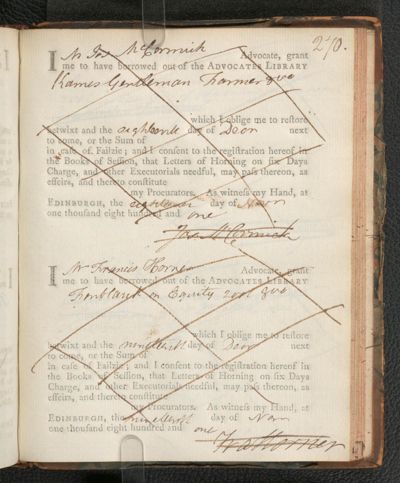 270.
I Mr Jas McCormick Advocate, grant
me to have borrowed out of the ADVOCATES LIBRARY
Kames Gentleman Farmer 8vo
which I oblige me to restore
betwixt and the eighteenth day of Decr next
to come, or the Sum of
in case of Failzie; and I consent to the registration hereof in
the Books of Session, that Letters of Horning on six Days
Charge, and other Executorials needful, may pass thereon, as
effeirs, and thereto constitute
my Procurators. As witness my Hand, at
EDINBURGH, the eighteenth day of Novr
one thousand eight hundred and one
Jas McCormick
I Mr Francis Horner Advocate, grant
me to have borrowed out of the ADVOCATES LIBRARY
Fonblanque on Equity 2 vol 8vo
which I oblige me to restore
betwixt and the nineteenth day of Decr next
to come, or the Sum of
in case of Failzie; and I consent to the registration hereof in
the Books of Session, that Letters of Horning on six Days
Charge, and other Executorials needful, may pass thereon, as
effeirs, and thereto constitute
my Procurators. As witness my Hand, at
EDINBURGH, the nineteenth day of Novr
one thousand eight hundred and one
Fra Horner